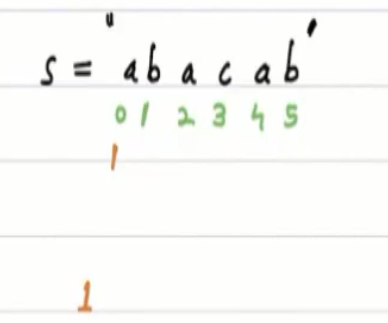 s = "abacab"
0 1 2 3 4 5
1
1